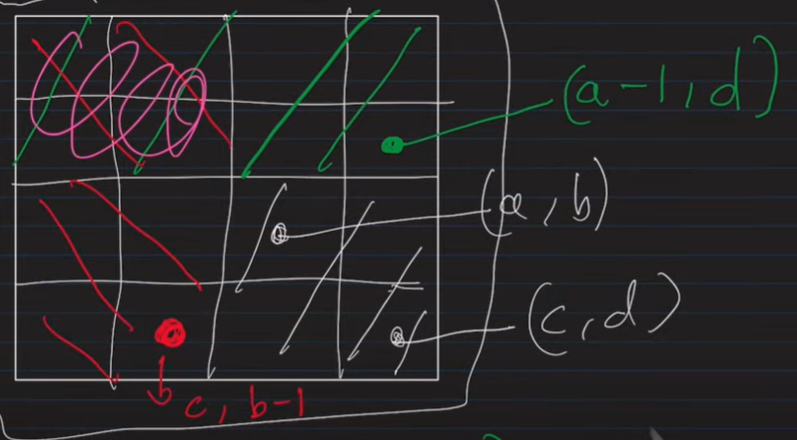 (a-1, d)
(a, b)
(c, d)
c, b-1